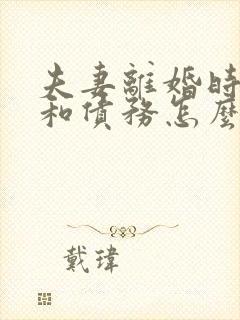 夫妻離婚時
和債務怎麼
戴瑋